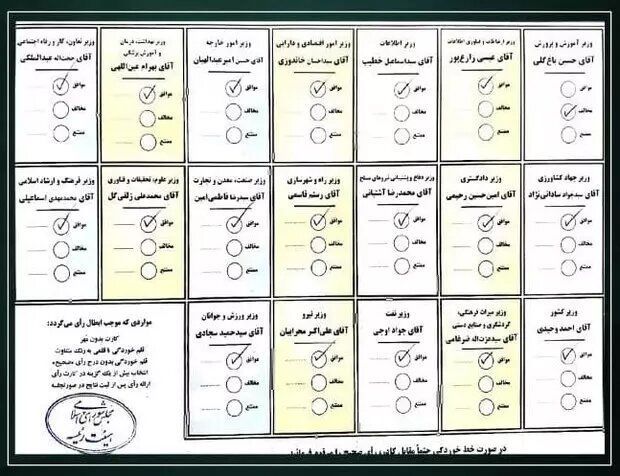 وزیر آموزش و پرورش
آقای حسین باغ‌گلی
موافق
مخالف
ممتنع
وزیر ارتباطات و فناوری اطلاعات
آقای عیسی زارع‌پور
موافق
مخالف
ممتنع
وزیر اطلاعات
آقای سیداسماعیل خطیب
موافق
مخالف
ممتنع
وزیر امور اقتصادی و دارایی
آقای سیداحسان خاندوزی
موافق
مخالف
ممتنع
وزیر امور خارجه
آقای حسین امیرعبدالهیان
موافق
مخالف
ممتنع
وزیر بهداشت، درمان
و آموزش پزشکی
آقای بهرام عین‌اللهی
موافق
مخالف
ممتنع
وزیر تعاون، کار و رفاه اجتماعی
آقای حجت‌اله عبدالملکی
موافق
مخالف
ممتنع
وزیر جهاد کشاورزی
آقای سیدجواد ساداتی‌نژاد
موافق
مخالف
ممتنع
وزیر دادگستری
آقای امین‌حسین رحیمی
موافق
مخالف
ممتنع
وزیر دفاع و پشتیبانی نیروهای مسلح
آقای محمدرضا آشتیانی
موافق
مخالف
ممتنع
وزیر راه و شهرسازی
آقای رستم قاسمی
موافق
مخالف
ممتنع
وزیر صنعت، معدن و تجارت
آقای سیدرضا فاطمی‌امین
موافق
مخالف
ممتنع
وزیر علوم، تحقیقات و فناوری
آقای محمدعلی زلفی‌گل
موافق
مخالف
ممتنع
وزیر فرهنگ و ارشاد اسلامی
آقای محمدمهدی اسماعیلی
موافق
مخالف
ممتنع
وزیر کشور
آقای احمد وحیدی
موافق
مخالف
ممتنع
وزیر میراث فرهنگی،
گردشگری و صنایع دستی
آقای سیدعزت‌اله ضرغامی
موافق
مخالف
ممتنع
وزیر نفت
آقای جواد اوجی
موافق
مخالف
ممتنع
وزیر نیرو
آقای علی‌اکبر محرابیان
موافق
مخالف
ممتنع
وزیر ورزش و جوانان
آقای سیدحمید سجادی
موافق
مخالف
ممتنع
مواردی که موجب ابطال رأی می‌گردد:
کارت بدون مُهر
قلم خوردگی با قلمی به رنگ متفاوت
قلم خوردگی بدون درج رأی «صحیح»
انتخاب بیش از یک گزینه در کارت رأی
ارائه رأی پس از ثبت نتایج در صورتجلسه
مجلس شورای اسلامی
هیئت رئیسه
در صورت خط خوردگی حتماً مقابل کادر، رأی صحیح را مرقوم فرمائید